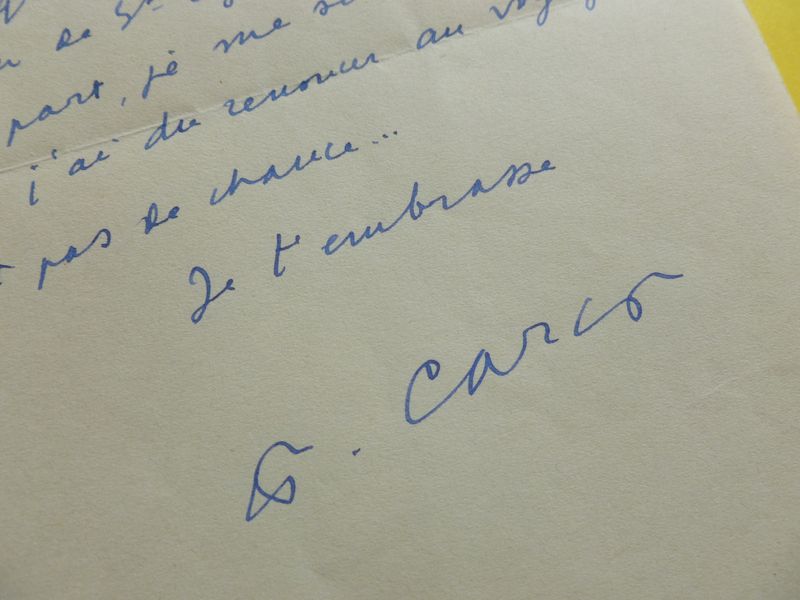 de St
part, je me
j'ai du renoncer au
pas de chance...
Je t'embrasse
F. Carco